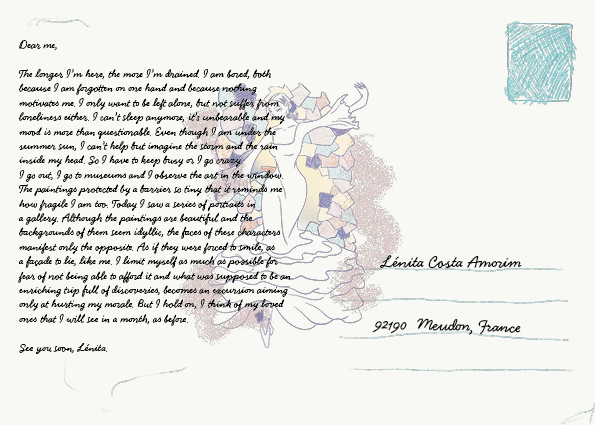 Dear me,
The longer I'm here, the more I'm drained. I am bored, both
because I am forgotten on one hand and because nothing
motivates me. I only want to be left alone, but not suffer from
loneliness either. I can't sleep anymore, it's unbearable and my
mood is more than questionable. Even though I am under the
summer sun, I can't help but imagine the storm and the rain
inside my head. So I have to keep busy or I go crazy.
I go out, I go to museums and I observe the art in the window.
The paintings protected by a barrier so tiny that it reminds me
how fragile I am too. Today I saw a series of portraits in
a gallery. Although the paintings are beautiful and the
backgrounds of them seem idyllic, the faces of these characters
manifest only the opposite. As if they were forced to smile, as
a façade to lie, like me. I limit myself as much as possible for
fear of not being able to afford it and what was supposed to be an
enriching trip full of discoveries, becomes an excursion aiming
only at hurting my morale. But I hold on, I think of my loved
ones that I will see in a month, as before.
See you soon, Lénita.
Lénita Costa Amorim
92190 Meudon, France